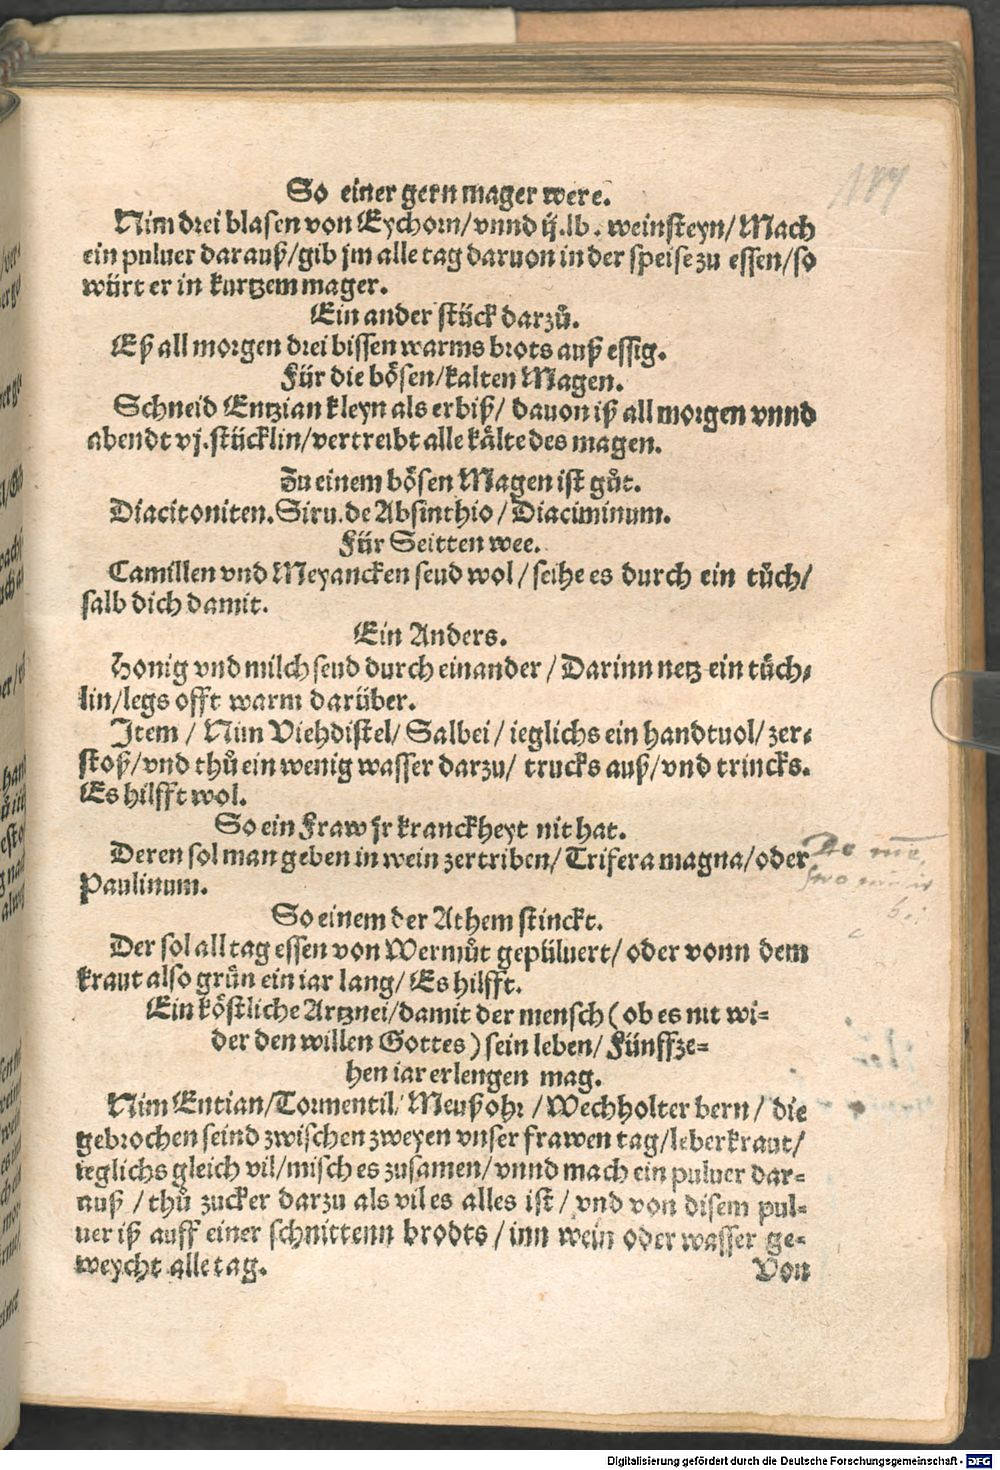 So einer gern mager were.
Nim drei blasen von Eychorn/vnnd ij.lb. weinsteyn/Mach
ein puluer darauß/gib jm alle tag daruon in der speise zu essen/so
würt er in kurtzem mager.
Ein ander stück darzů.
Eß all morgen drei bissen warms brots auß essig.
Für die bösen/kalten Magen.
Schneid Entzian kleyn als erbiß/ dauon iß all morgen vnnd
abendt vj.stücklin/vertreibt alle kälte des magen.
Zu einem bösen Magen ist gůt.
Diacitoniten.Siru.de Absinthio/Diaciminum.
Für Seitten wee.
Camillen vnd Meyancken seud wol/seihe es durch ein tůch/
salb dich damit.
Ein Anders.
Honig vnd milch seud durch einander/Darinn netz ein tůch⸗
lin/legs offt warm darüber.
Item/Nim Viehdistel/Salbei/ieglichs ein handtuol/zer⸗
stoß/vnd thů ein wenig wasser darzu/ trucks auß/vnd trincks.
Es hilfft wol.
So ein Fraw jr kranckheyt nit hat.
Deren sol man geben in wein zertriben/Trifera magna/oder
Paulinum.
So einem der Athem stinckt.
Der sol all tag essen von Wermůt gepüluert/oder vonn dem
kraut also grůn ein iar lang/Es hilfft.
Ein köstliche Artznei/damit der mensch (ob es nit wi⸗
der den willen Gottes) sein leben/Fünffze⸗
hen iar erlengen mag.
Nim Entian/Tormentil/Meußohr/Wechholter bern/die
gebrochen seind zwischen zweyen vnser frawen tag/leberkraut/
ieglichs gleich vil/misch es zusamen/vnnd mach ein puluer dar⸗
auß/thů zucker darzu als vil es alles ist/vnd von disem pul⸗
uer iß auff einer schnittenn brodts/inn wein oder wasser ge⸗
weycht alle tag.
Von
Digitalisierung gefördert durch die Deutsche Forschungsgemeinschaft - DFG